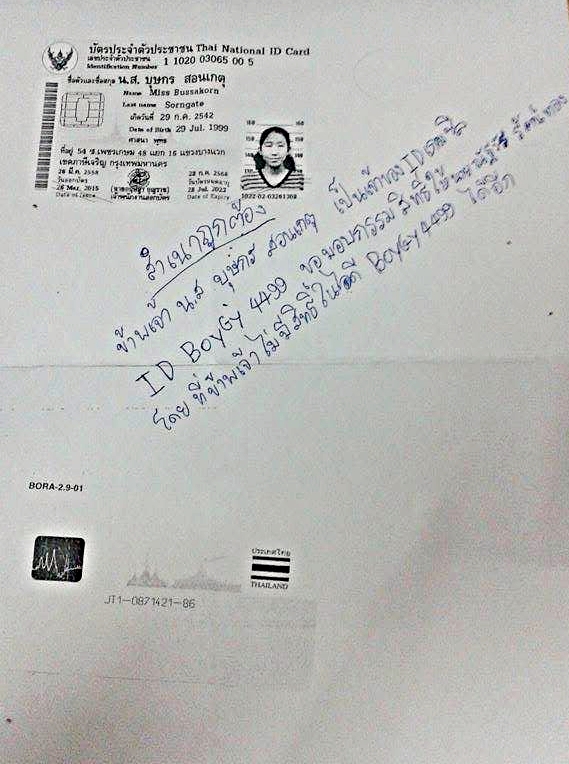 บัตรประจำตัวประชาชน Thai National ID Card
เลขประจำตัวประชาชน
Identification Number 1 1020 03065 00 5
ชื่อตัวและชื่อสกุล น.ส. บุษกร สอนเกตุ
Name Miss Bussakorn
Last name Sorngate
เกิดวันที่ 29 ก.ค. 2542
Date of Birth 29 Jul. 1999
ศาสนา พุทธ
ที่อยู่ 54 ซ.เพชรเกษม 48 แยก 16 แขวงบางแวก
เขตภาษีเจริญ กรุงเทพมหานคร
26 มี.ค. 2558
วันออกบัตร
26 Mar. 2015
Date of Issue
เจ้าพนักงานออกบัตร
28 ก.ค. 2565
วันบัตรหมดอายุ
28 Jul. 2022
Date of Expiry
160
150
สำเนาถูกต้อง
ข้าพเจ้า น.ส บุษกร สอนเกตุ เป็นเจ้าของ ID
ID BOYGY 4499 ขอมอบกรรมสิทธิ์ให้
โดยที่ข้าพเจ้าไม่มีสิทธิ์ในไอดี BOYGY4499 ได้อีก
BORA-2.9-01
ประเทศไทย
THAILAND
JT1-0871421-86